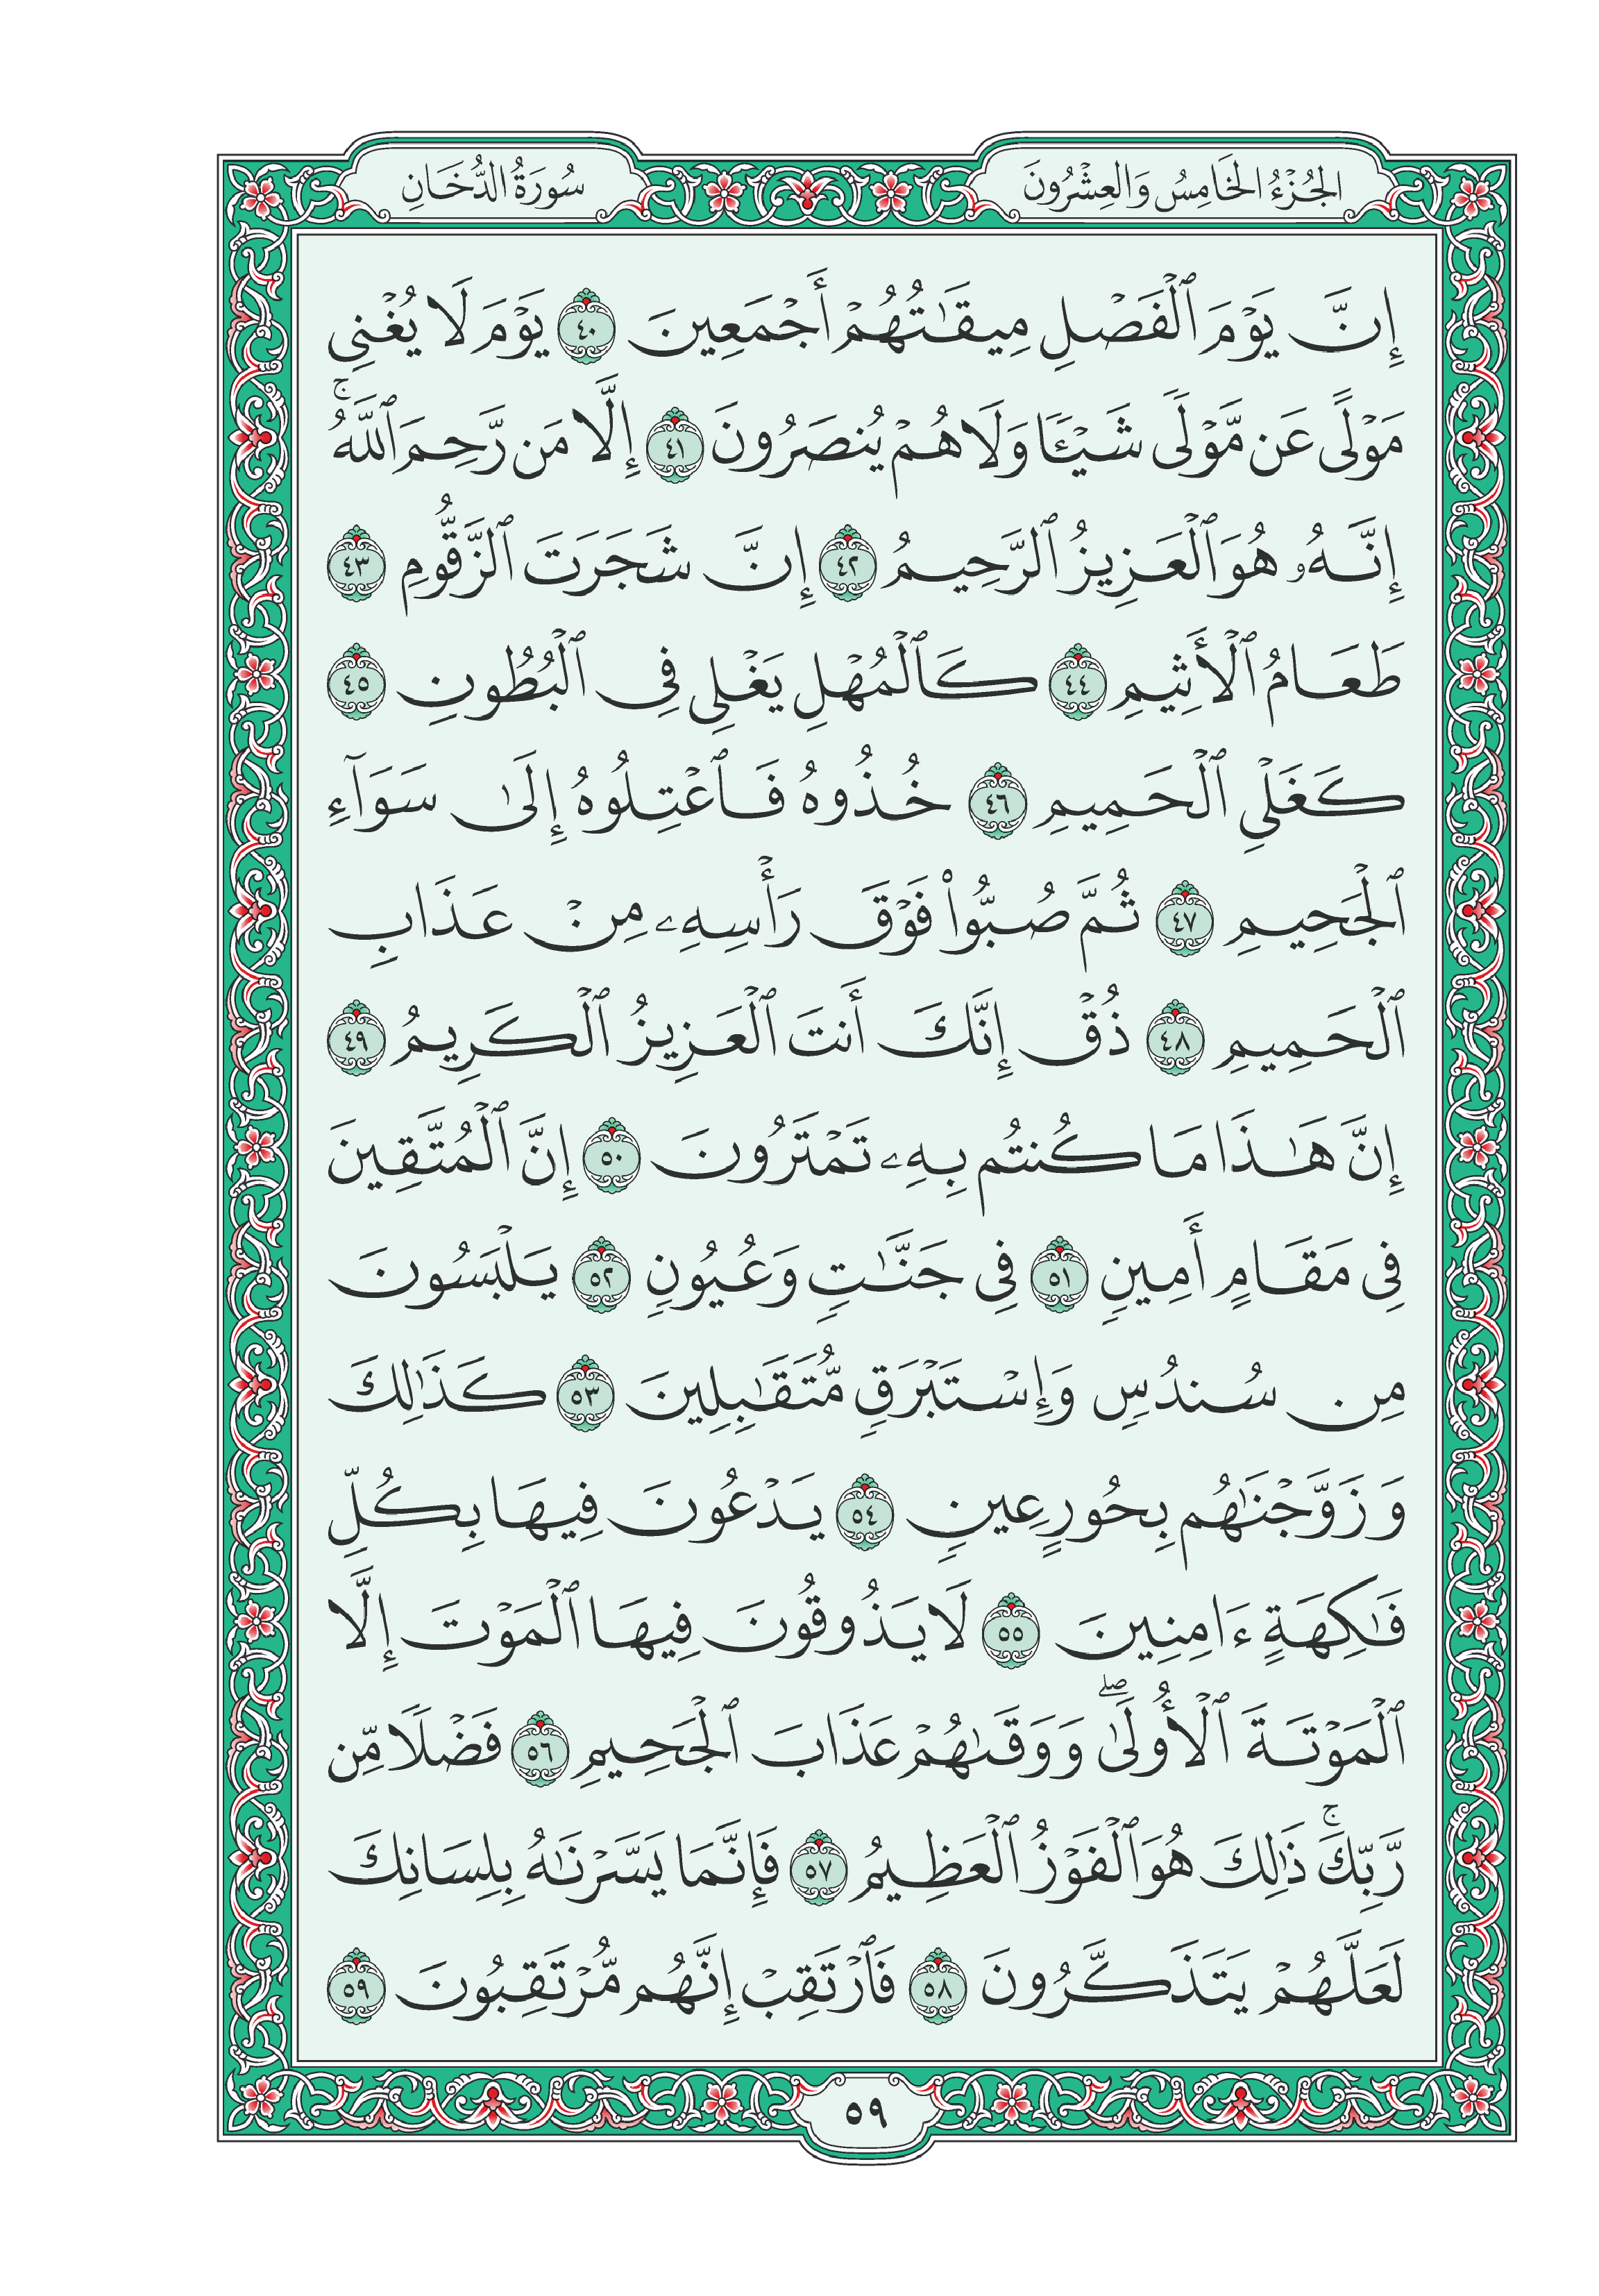 الجُزْءُ الخَامِسُ وَالعِشْرُونَ
سُورَةُ الدُّخَانِ
إِنَّ يَوْمَ ٱلْفَصْلِ مِيقَٰتُهُمْ أَجْمَعِينَ ٤٠ يَوْمَ لَا يُغْنِى
مَوْلًى عَن مَّوْلًى شَيْـًٔا وَلَا هُمْ يُنصَرُونَ ٤١ إِلَّا مَن رَّحِمَ ٱللَّهُ ۚ
إِنَّهُۥ هُوَ ٱلْعَزِيزُ ٱلرَّحِيمُ ٤٢ إِنَّ شَجَرَتَ ٱلزَّقُّومِ ٤٣
طَعَامُ ٱلْأَثِيمِ ٤٤ كَٱلْمُهْلِ يَغْلِى فِى ٱلْبُطُونِ ٤٥
كَغَلْىِ ٱلْحَمِيمِ ٤٦ خُذُوهُ فَٱعْتِلُوهُ إِلَىٰ سَوَآءِ
ٱلْجَحِيمِ ٤٧ ثُمَّ صُبُّوا۟ فَوْقَ رَأْسِهِۦ مِنْ عَذَابِ
ٱلْحَمِيمِ ٤٨ ذُقْ إِنَّكَ أَنتَ ٱلْعَزِيزُ ٱلْكَرِيمُ ٤٩
إِنَّ هَٰذَا مَا كُنتُم بِهِۦ تَمْتَرُونَ ٥٠ إِنَّ ٱلْمُتَّقِينَ
فِى مَقَامٍ أَمِينٍ ٥١ فِى جَنَّٰتٍ وَعُيُونٍ ٥٢ يَلْبَسُونَ
مِن سُندُسٍ وَإِسْتَبْرَقٍ مُّتَقَٰبِلِينَ ٥٣ كَذَٰلِكَ
وَزَوَّجْنَٰهُم بِحُورٍ عِينٍ ٥٤ يَدْعُونَ فِيهَا بِكُلِّ
فَٰكِهَةٍ ءَامِنِينَ ٥٥ لَا يَذُوقُونَ فِيهَا ٱلْمَوْتَ إِلَّا
ٱلْمَوْتَةَ ٱلْأُولَىٰ ۖ وَوَقَىٰهُمْ عَذَابَ ٱلْجَحِيمِ ٥٦ فَضْلًا مِّن
رَّبِّكَ ۚ ذَٰلِكَ هُوَ ٱلْفَوْزُ ٱلْعَظِيمُ ٥٧ فَإِنَّمَا يَسَّرْنَٰهُ بِلِسَانِكَ
لَعَلَّهُمْ يَتَذَكَّرُونَ ٥٨ فَٱرْتَقِبْ إِنَّهُم مُّرْتَقِبُونَ ٥٩
٥٩